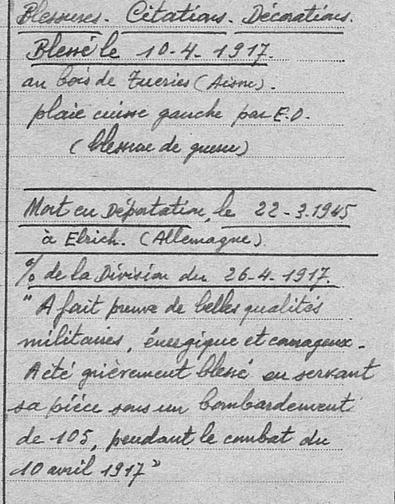 Blessures. Citations. Décorations.
Blessé le 10-4-1917
au bois de (Aisne).
plaie cuisse gauche par E.O.
(blessure de guerre)
Mort en Déportation, le 22-3-1945
à Elrich. (Allemagne)
% de la Division du 26-4-1917.
"A fait preuve de belles qualités
militaires, énergique et courageux.
A été grièvement blessé en servant
sa pièce sous un bombardement
de 105, pendant le combat du
10 avril 1917"